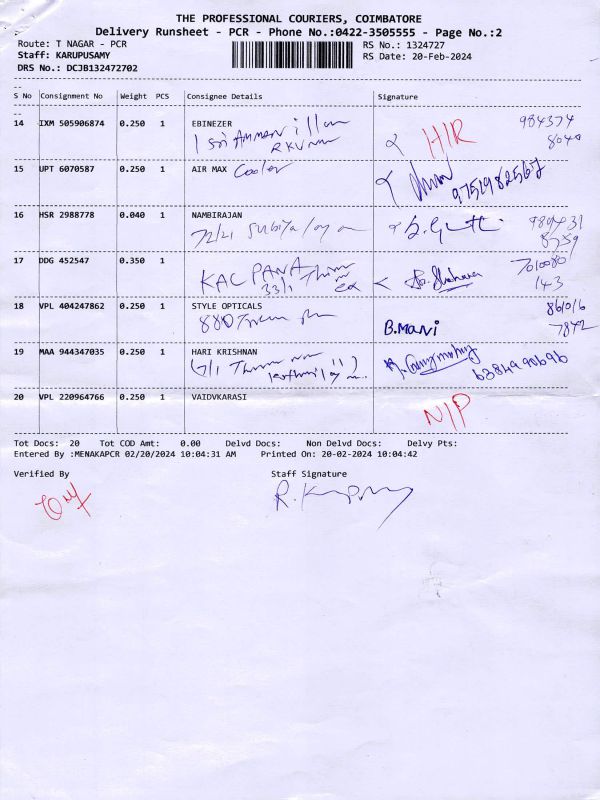 THE PROFESSIONAL COURIERS, COIMBATORE
Delivery Runsheet - PCR - Phone No.:0422-3505555 - Page No.:2
Route: T NAGAR - PCR RS No.: 1324727
Staff: KARUPUSAMY RS Date: 20-Feb-2024
DRS No.: DCJB132472702
S No Consignment No Weight PCS Consignee Details Signature
14 IXM 505906874 0.250 1 EBINEZER H/R 984374
8040
15 UPT 6070587 0.250 1 AIR MAX Cooler
9751982567
16 HSR 2988778 0.040 1 NAMBIRAJAN
72/21
8759
17 DDG 452547 0.350 1 7010080
KALPANA 143
33/1
18 VPL 404247862 0.250 1 STYLE OPTICALS 861016
880 B.Mani 7842
19 MAA 944347035 0.250 1 HARI KRISHNAN
6384990696
20 VPL 220964766 0.250 1 VAIDVKARASI N/P
Tot Docs: 20 Tot COD Amt: 0.00 Delvd Docs: Non Delvd Docs: Delvy Pts:
Entered By :MENAKAPCR 02/20/2024 10:04:31 AM Printed On: 20-02-2024 10:04:42
Verified By Staff Signature